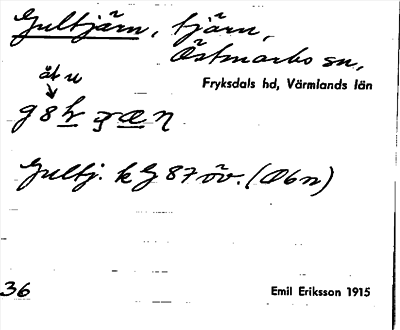 Gultjärn, tjärn,
Östmarks sn,
Fryksdals hd, Värmlands län
åt u
Gultj. k G 87 öv. (Ö6n)
36
Emil Eriksson 1915